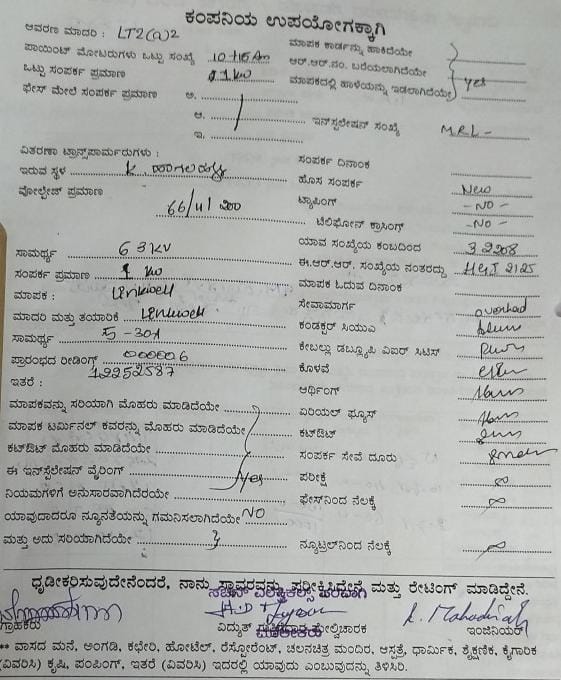 ಕಂಪನಿಯ ಉಪಯೋಗಕ್ಕಾಗಿ
ಆವರಣ ಮಾದರಿ : LT2(a)2
ಮಾಪಕ ಕಾರ್ಡನ್ನು ಹಾಕಿದೆಯೇ
ಪಾಯಿಂಟ್ ಮೋಟರುಗಳು ಒಟ್ಟು ಸಂಖ್ಯೆ
ಆರ್.ಆರ್.ನಂ. ಬರೆಯಲಾಗಿದೆಯೇ
ಒಟ್ಟು ಸಂಪರ್ಕ ಪ್ರಮಾಣ 1 KW
ಮಾಪಕದಲ್ಲಿ ಹಾಳೆಯನ್ನು ಇಡಲಾಗಿದೆಯೇ yes
ಫೇಸ್ ಮೇಲೆ ಸಂಪರ್ಕ ಪ್ರಮಾಣ ಅ.
ಆ. ಇನ್‌ಸ್ಟಲೇಷನ್ ಸಂಖ್ಯೆ MRL-
ಇ.
ವಿತರಣಾ ಟ್ರಾನ್ಸ್‌ಫಾರ್ಮರುಗಳು :
ಸಂಪರ್ಕ ದಿನಾಂಕ
ಇರುವ ಸ್ಥಳ
ಹೊಸ ಸಂಪರ್ಕ New
ವೋಲ್ಟೇಜ್ ಪ್ರಮಾಣ 66/11
ಟ್ಯಾಪಿಂಗ್ -NO-
ಟೆಲಿಫೋನ್ ಕ್ರಾಸಿಂಗ್ -NO-
ಯಾವ ಸಂಖ್ಯೆಯ ಕಂಬದಿಂದ
ಸಾಮರ್ಥ್ಯ 63KV
ಈ.ಆರ್.ಆರ್. ಸಂಖ್ಯೆಯ ನಂತರದ್ದು
ಸಂಪರ್ಕ ಪ್ರಮಾಣ 1 KW
ಮಾಪಕ ಓದುವ ದಿನಾಂಕ
ಮಾಪಕ : Linkwell
ಸೇವಾಮಾರ್ಗ overhead
ಮಾದರಿ ಮತ್ತು ತಯಾರಿಕೆ Linkwell
ಕಂಡಕ್ಟರ್ ಸಿಯುಎ
ಸಾಮರ್ಥ್ಯ 5-30A
ಕೇಬಲ್ಲು ಡಬ್ಲ್ಯೂಪಿ ಎಐರ್ ಸಿಟಿಸ್
ಪ್ರಾರಂಭದ ರೀಡಿಂಗ್ 000006
12252587
ಕೊಳವೆ
ಇತರೆ :
ಆರ್ಥಿಂಗ್
ಮಾಪಕವನ್ನು ಸರಿಯಾಗಿ ಮೊಹರು ಮಾಡಿದೆಯೇ
ಏರಿಯಲ್ ಫ್ಯೂಸ್
ಮಾಪಕ ಟರ್ಮಿನಲ್ ಕವರನ್ನು ಮೊಹರು ಮಾಡಿದೆಯೇ
ಕಟ್‌ಔಟ್
ಕಟ್‌ಔಟ್ ಮೊಹರು ಮಾಡಿದೆಯೇ
ಸಂಪರ್ಕ ಸೇವೆ ದೂರು
ಈ ಇನ್‌ಸ್ಟಲೇಷನ್ ವೈರಿಂಗ್ yes
ಪರೀಕ್ಷೆ ∞
ನಿಯಮಗಳಿಗೆ ಅನುಸಾರವಾಗಿದೆರಯೇ
ಫೇಸ್‌ನಿಂದ ನೆಲಕ್ಕೆ ∞
ಯಾವುದಾದರೂ ನ್ಯೂನತೆಯನ್ನು ಗಮನಿಸಲಾಗಿದೆಯೇ NO
ಮತ್ತು ಅದು ಸರಿಯಾಗಿದೆಯೇ
ನ್ಯೂಟ್ರಲ್‌ನಿಂದ ನೆಲಕ್ಕೆ ∞
ಧೃಡೀಕರಿಸುವುದೇನೆಂದರೆ, ನಾನು ಸ್ಥಾವರವನ್ನು ಪರೀಕ್ಷಿಸಿದ್ದೇನೆ ಮತ್ತು ರೇಟಿಂಗ್ ಮಾಡಿದ್ದೇನೆ.
ಗ್ರಾಹಕರು ವಿದ್ಯುತ್ ಮೇಲ್ವಿಚಾರಕ ಇಂಜಿನಿಯರ್
** ವಾಸದ ಮನೆ, ಅಂಗಡಿ, ಕಛೇರಿ, ಹೋಟೆಲ್, ರೆಸ್ಟೋರೆಂಟ್, ಚಲನಚಿತ್ರ ಮಂದಿರ, ಆಸ್ಪತ್ರೆ, ಧಾರ್ಮಿಕ, ಶೈಕ್ಷಣಿಕ, ಕೈಗಾರಿಕೆ
(ವಿವರಿಸಿ) ಕೃಷಿ, ಪಂಪಿಂಗ್, ಇತರೆ (ವಿವರಿಸಿ) ಇದರಲ್ಲಿ ಯಾವುದು ಎಂಬುವನ್ನು ತಿಳಿಸಿರಿ.